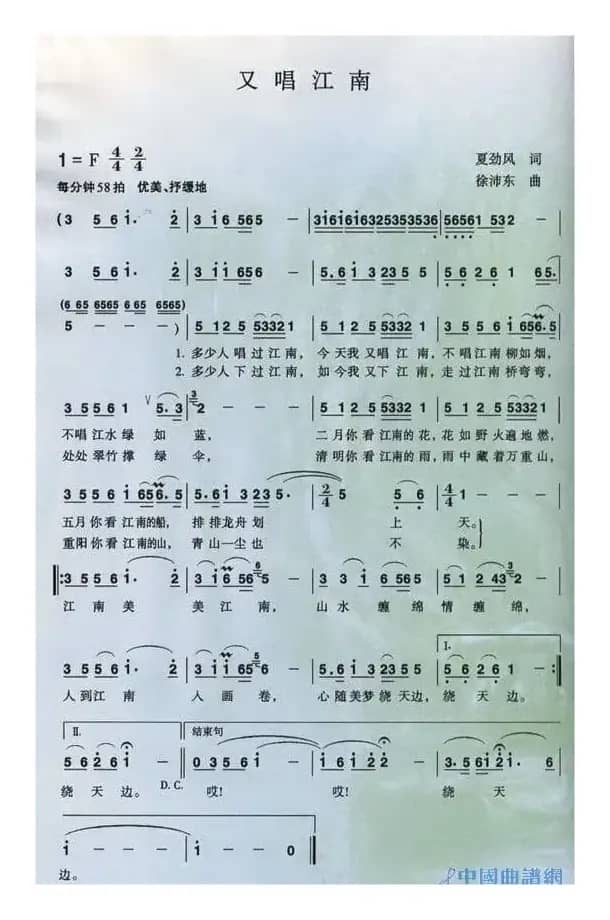 又唱江南
1=F 4/4 2/4
夏劲风 词
每分钟58拍 优美、抒缓地
徐沛东 曲
(3 5 6 1· 2 | 3 1 6 565 - | 3161616325353536 | 56561 532 - |
3 5 6 1· 2 | 3 1 1 656 - | 5·61 3 23 5 5 | 5 6 2 6 1 65· |
(6 65 6565 6 65 6565)
5 - - ) | 5 1 2 5 53321 | 5 1 2 5 53321 | 3 5 5 3 5 1 656·5 |
1. 多少人唱过江南， 今天我又唱江南， 不唱江南柳如烟，
2. 多少人下过江南， 如今我又下江南， 走过江南桥弯弯，
3 5 5 6 1 ∨ 5·3 | 2 - - - | 5 1 2 5 53321 | 5 1 2 5 53321 |
不唱江水绿如蓝， 二月你看江南的花，花如野火遍地燃，
处处翠竹撑绿伞， 清明你看江南的雨，雨中藏着万重山，
3 5 5 3 5 1 656·5 | 5·61 3 235· | 2/4 5 5 6 | 4/4 1 - - - |
五月你看江南的船， 排排龙舟划 上天。
重阳你看江南的山， 青山一尘也 不染。
3 5 5 6 1· 2 | 3 1 6 565 - | 3 3 1 6 565 | 5 1 2 43 2 - |
江南美 美江南， 山水缠绵情缠绵，
3 5 5 6 1· 2 | 3 1 1 65 6 - | 5·61 3 23 5 5 | I. 5 6 2 6 1 - :||
人到江南 人画卷， 心随美梦绕天边，绕天边。
II. 结束句
5 6 2 6 1 - || 0 3 5 6 1 2 - | 1 6 1 2 2 - | 3·5 6 1 2 1· 6 |
绕天边。 D.C. 哎！ 哎！ 绕天
1 - - - | 1 - - 0 ||
边。
中國曲譜網